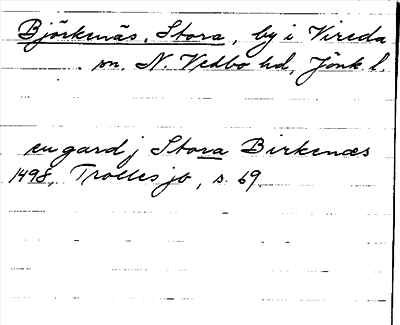 Björkenäs, Stora, by i Vireda
sn. N. Vedbo hd, Jönk. l.
en gard j Stora Birkenæs
1498, Trolles jb, s. 69